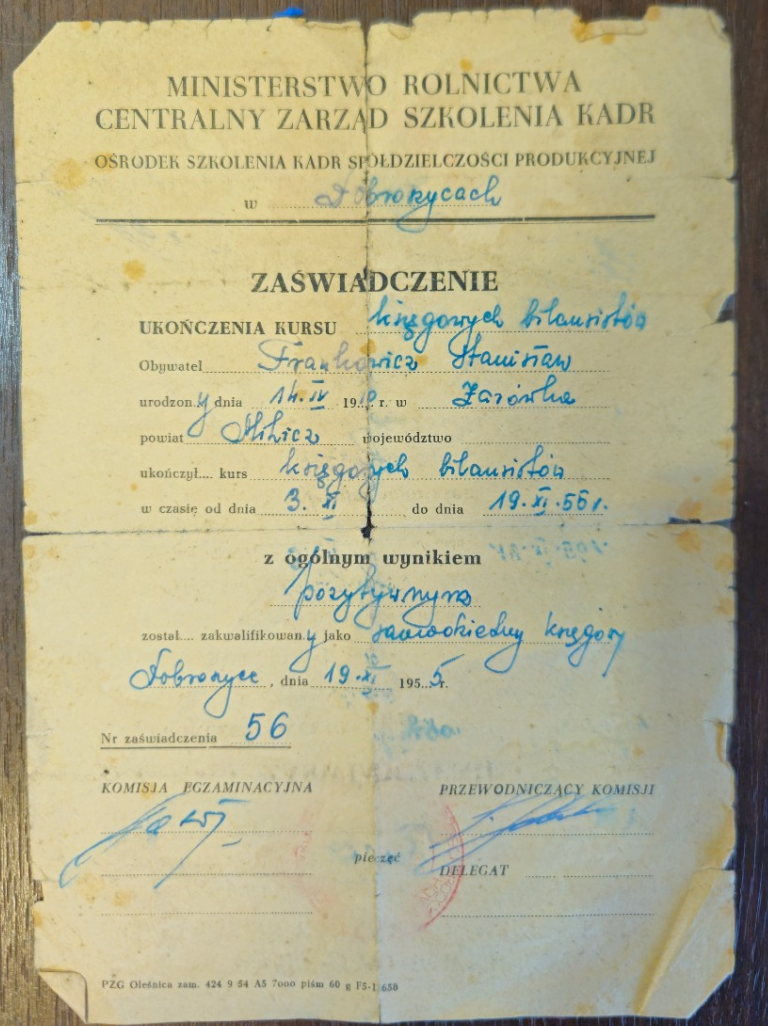 MINISTERSTWO ROLNICTWA
CENTRALNY ZARZĄD SZKOLENIA KADR
OŚRODEK SZKOLENIA KADR SPÓŁDZIELCZOŚCI PRODUKCYJNEJ
w Dobroszycach
ZAŚWIADCZENIE
UKOŃCZENIA KURSU księgowych bilansistów
Obywatel Frankowicz Stanisław
urodzon.y dnia 14. IV 19 r. w Żarówka
powiat Milicz województwo
ukończył.... kurs księgowych bilansistów
w czasie od dnia 3. XI do dnia 19. XI. 55 r.
z ogólnym wynikiem
pozytywnym
został.... zakwalifikowan.y jako samodzielny księgowy
Dobroszyce, dnia 19. XI 195..5 r.
Nr zaświadczenia 56
KOMISJA EGZAMINACYJNA
PRZEWODNICZĄCY KOMISJI
pieczęć
DELEGAT
PZG Oleśnica zam. 424 9 54 A5 7000 piśm 60 g F5-1 658